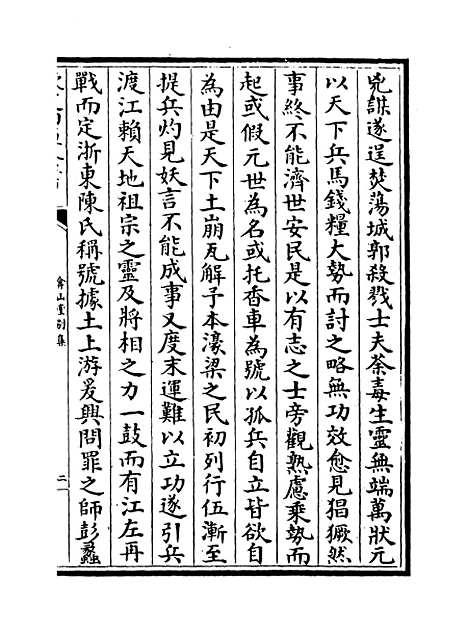 兇謀遂逞焚蕩城郭殺戮士夫荼毒生靈無端萬狀元
以天下兵馬錢糧大勢而討之略無功效愈見猖獗然
事終不能濟世安民是以有志之士旁觀熟慮乘勢而
起或假元世為名或托香車為號以孤兵自立皆欲自
為由是天下土崩瓦解予本濠梁之民初列行伍漸至
提兵灼見妖言不能成事又度末運難以立功遂引兵
渡江賴天地祖宗之靈及將相之力一鼓而有江左再
戰而定浙東陳氏稱號據土上游爰興問罪之師彭蠡
弇山堂别集
二